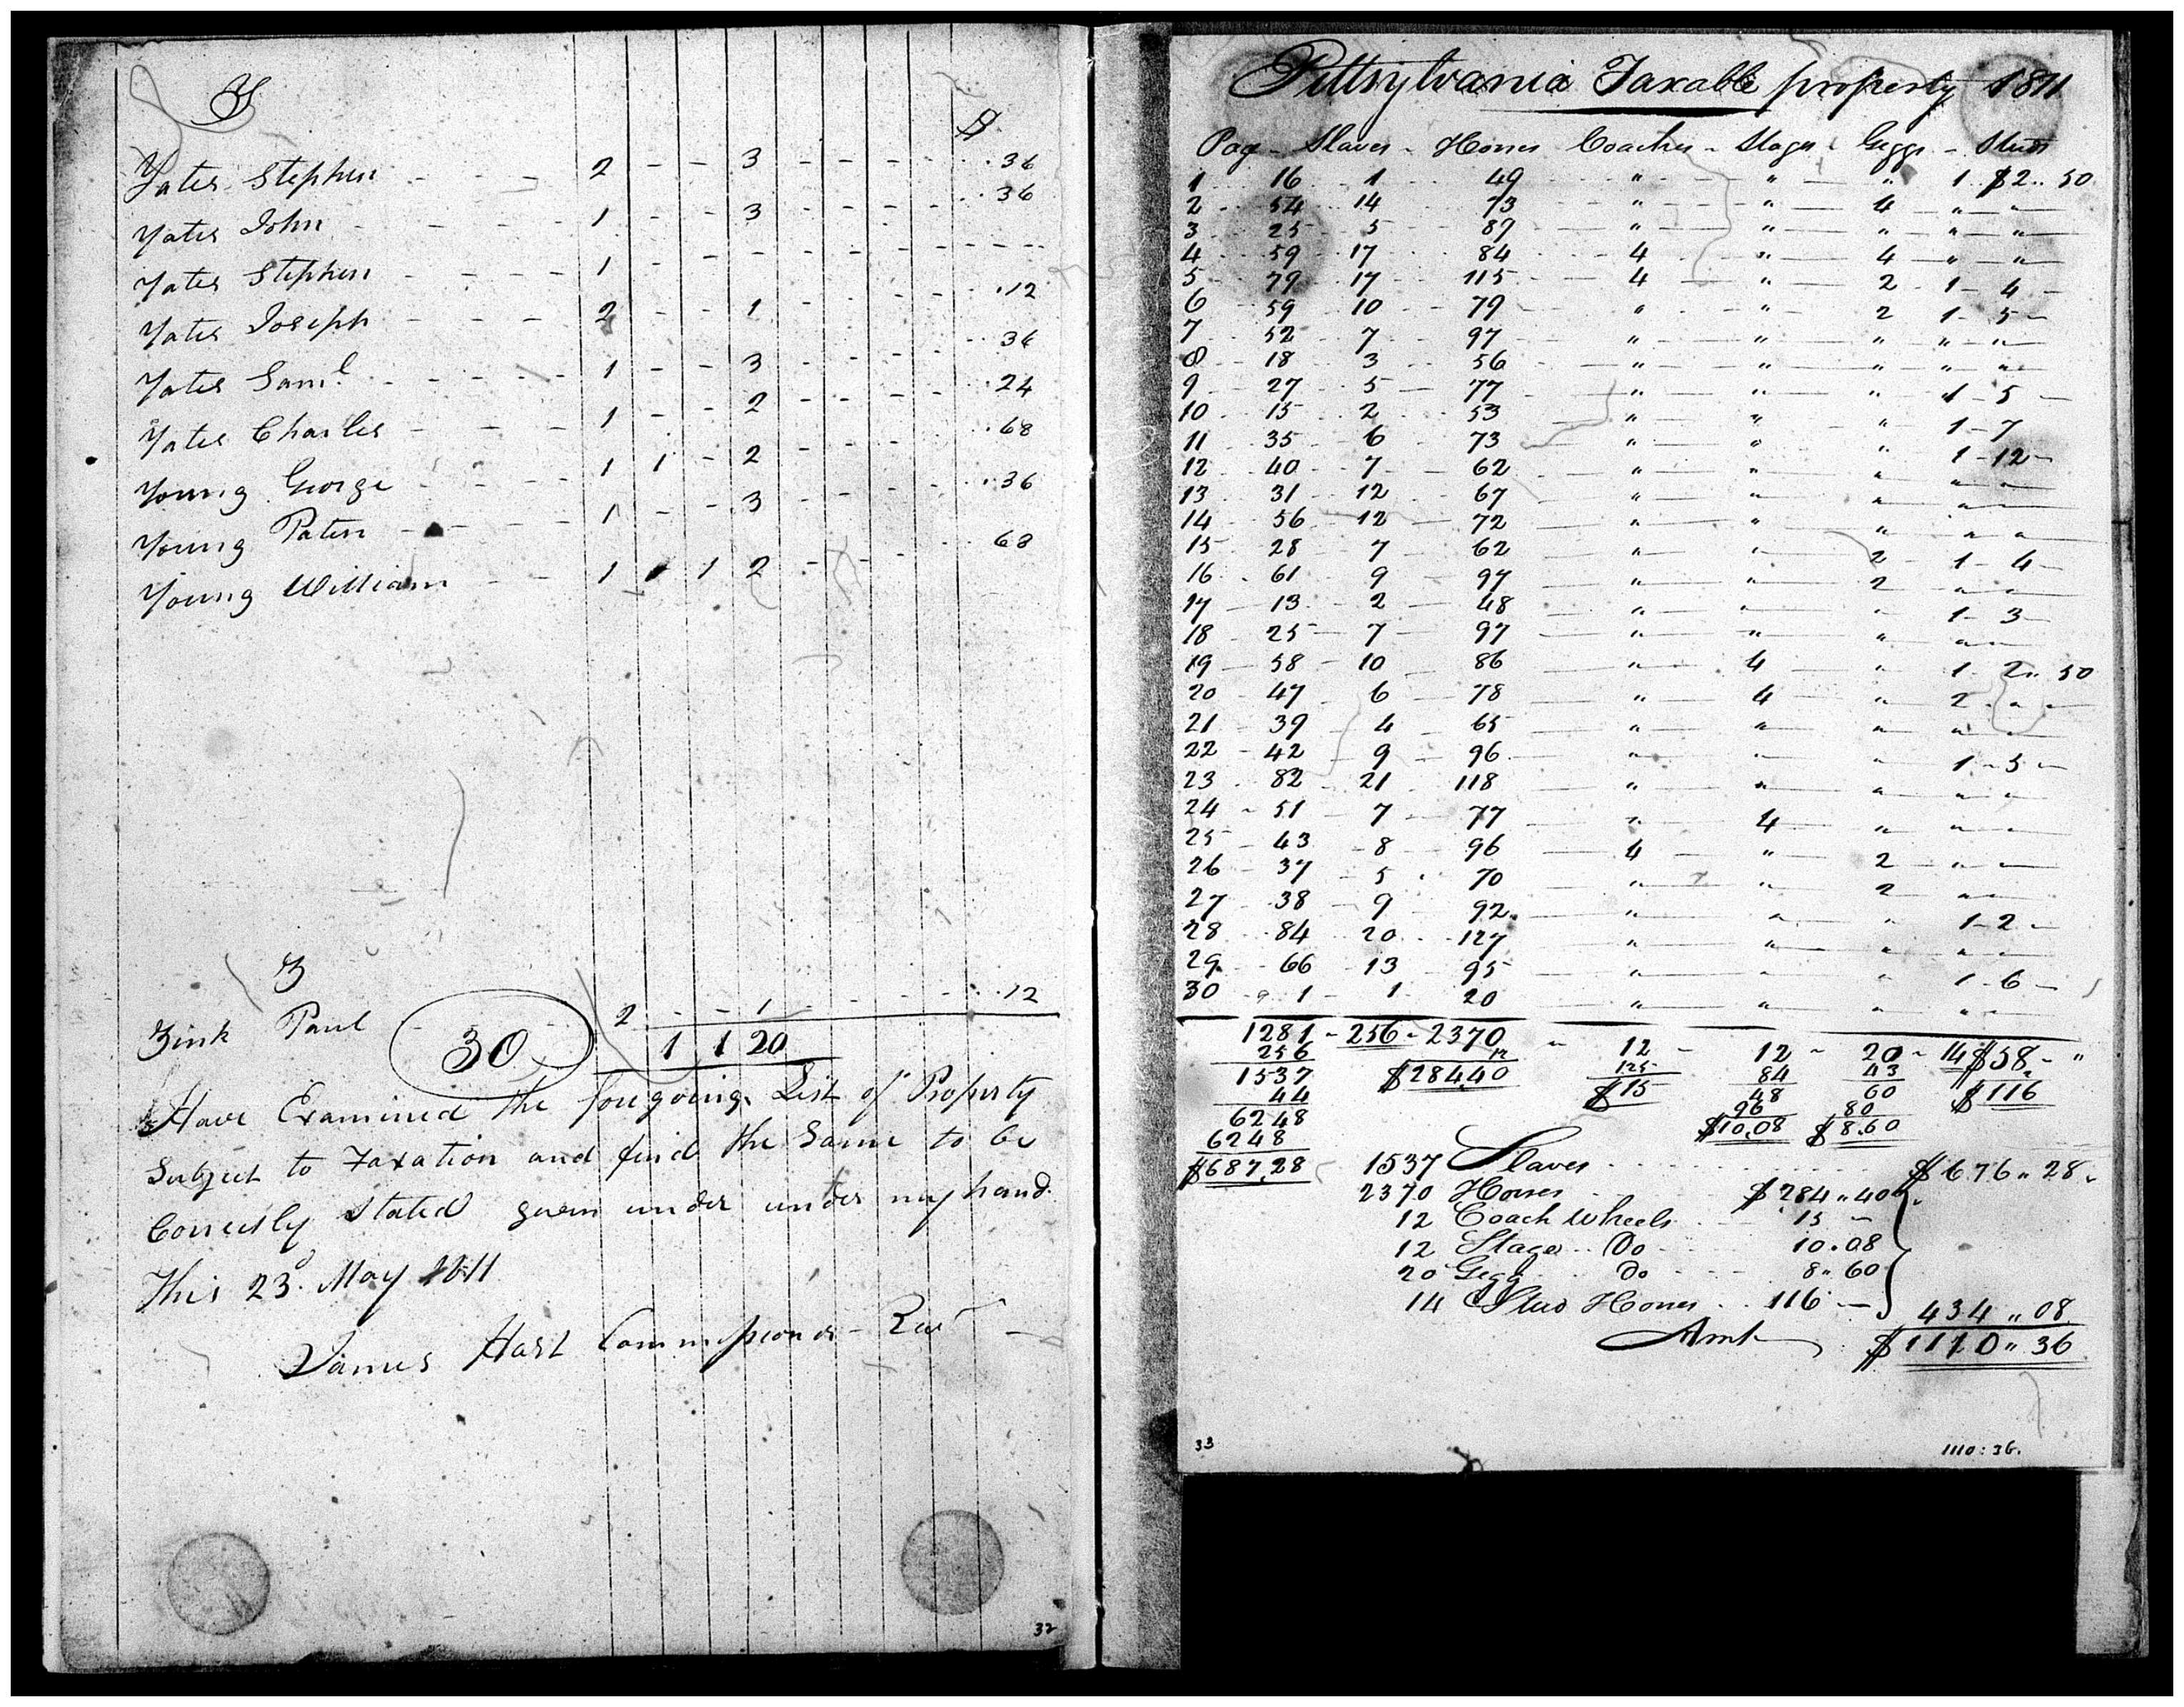 Y $
Yates Stephen - - - 2 - - 3 - - - - - . . 36
Yates John - - - - 1 - - 3 - - - - . . 36
Yates Stephen - - - - 1 - - - - - - - -
Yates Joseph - - - 2 - - 1 - - - - . 12
Yates Saml. - - - - - 1 - - 3 - - - - . . 36
Yates Charles - - - 1 - - 2 - - - - . . 24
Young George - - - 1 1 - 2 - - - - . . 68
Young Paten - - - - 1 - - 3 - - - - . . 36
Young William - - 1 1 2 - - - . . 68
Z
Zink Paul 2 - - 1 - - - - - . . 12
30 1 1 20
Have Examined the foregoing List of Property
Subject to Taxation and find the Same to be
Correctly Stated given under under my hand
This 23d. May 1811
James Hart Commissioner Revr
32
Pittsylvania Taxable property 1811
Pag - Slaves - Horses Coaches - Stages - Geggs - Studs
1 16 1 49 " " " 1 $2 .. 50
2 54 14 73 " " 4 " "
3 25 5 87 " " " " "
4 59 17 84 4 " 4 " "
5 79 17 115 4 " 2 1 - 4 -
6 59 10 79 " " 2 1 - 5 -
7 52 7 97 " " " " "
8 18 3 56 " " " " "
9 27 5 77 " " " 1 - 5 -
10 15 2 53 " " " 1 - 7
11 35 6 73 " " " 1 - 12 -
12 40 7 62 " " " " "
13 31 12 67 " " " " "
14 56 12 72 " " " " "
15 28 7 62 " " 2 1 - 4 -
16 61 9 97 " " 2 " "
17 13 2 48 " " " 1 - 3 -
18 25 7 97 " " " " "
19 58 10 86 " 4 " 1 - 2 .. 50
20 47 6 78 " 4 " 2 - " "
21 39 4 65 " " " " "
22 42 9 96 " " " 1 - 5 -
23 82 21 118 " " " " "
24 51 7 77 " 4 " " "
25 43 8 96 4 " 2 " "
26 37 5 70 " " 2 " "
27 38 9 92 " " " 1 - 2 -
28 84 20 127 " " " " "
29 66 13 95 " " " 1 - 6 -
30 1 1 20 " " " " "
1281 - 256 - 2370 - 12 - 12 - 20 - 14 $58 - "
256 12 125 84 43 2
1537 $284.40 $15 48 60 $116
44 96 80
6248 $10.08 $8.60
6248
$687.28
1537 Slaves $676 .. 28
2370 Horses $284 .. 40
12 Coach Wheels 15 -
12 Stage .. Do 10 . 08
20 Gegg Do 8 .. 60
14 Stud Horses . . 116 - 434 .. 08
Amt $1110 .. 36
33 1110:36.